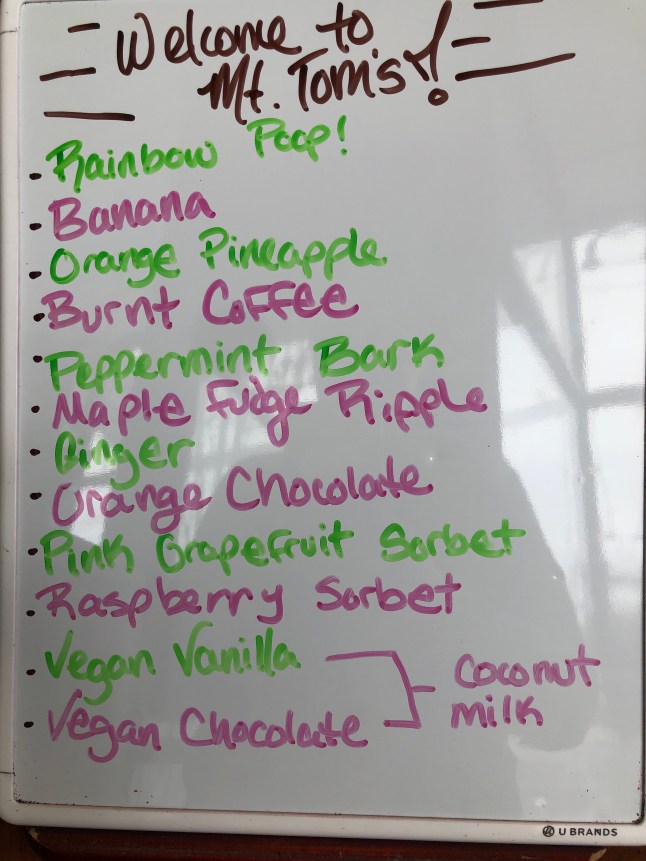 Welcome to
Mt. Tom's!
• Rainbow Poop!
• Banana
• Orange Pineapple
• Burnt Coffee
• Peppermint Bark
• Maple Fudge Ripple
• Ginger
• Orange Chocolate
• Pink Grapefruit Sorbet
• Raspberry Sorbet
• Vegan Vanilla
• Vegan Chocolate
Coconut
milk
U BRANDS